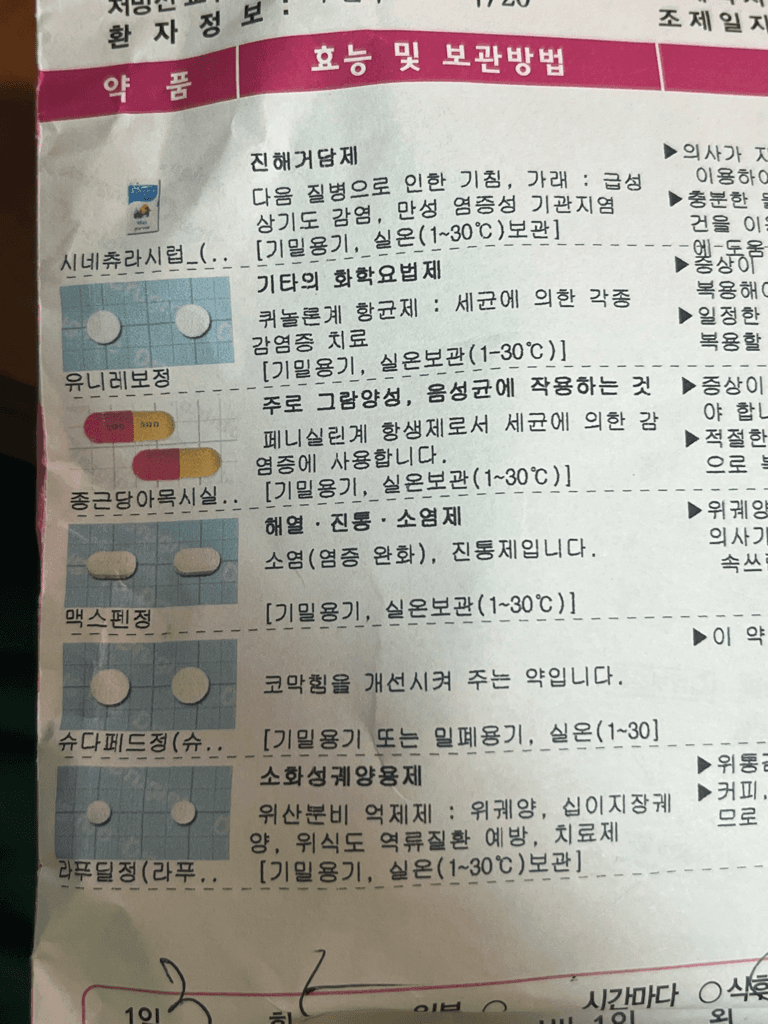 환 자 정 보 :
조 제 일 자
약 품
효능 및 보관방법
진해거담제
다음 질병으로 인한 기침, 가래 : 급성
상기도 감염, 만성 염증성 기관지염
[기밀용기, 실온(1~30℃)보관]
시네츄라시럽_(..
▶의사가 지
이용하여
▶충분한 물
건을 이용
에 도움
기타의 화학요법제
퀴놀론계 항균제 : 세균에 의한 각종
감염증 치료
[기밀용기, 실온보관(1-30℃)]
유니레보정
▶증상이
복용해야
▶일정한
복용할
주로 그람양성, 음성균에 작용하는 것
페니실린계 항생제로서 세균에 의한 감
염증에 사용합니다.
[기밀용기, 실온보관(1~30℃)]
종근당아목시실..
▶증상이
야 합니
▶적절한
으로 복
해열·진통·소염제
소염(염증 완화), 진통제입니다.
[기밀용기, 실온보관(1~30℃)]
맥스펜정
▶위궤양
의사가
속쓰
코막힘을 개선시켜 주는 약입니다.
[기밀용기 또는 밀폐용기, 실온(1~30]
슈다페드정(슈..
▶이 약
소화성궤양용제
위산분비 억제제 : 위궤양, 십이지장궤
양, 위식도 역류질환 예방, 치료제
[기밀용기, 실온(1~30℃)보관]
라푸딜정(라푸..
▶위통
▶커피,
므로
1일 3 회
시간마다 ○식후
1일